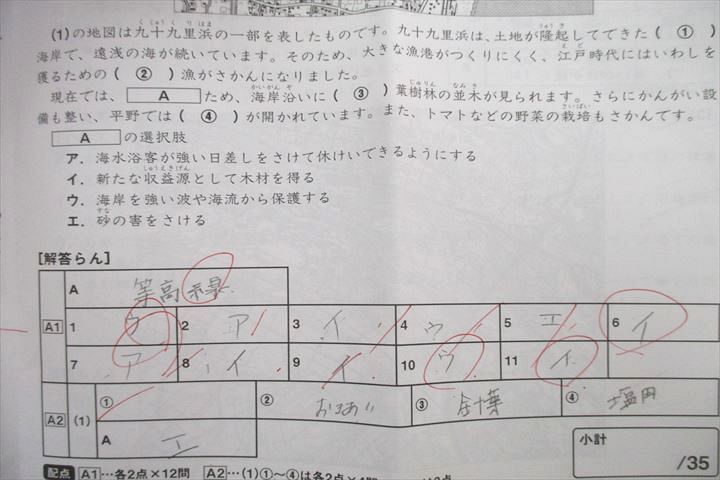 (1)の地図は九十九里浜の一部を表したものです。九十九里浜は、土地が隆起してできた( ① )
海岸で、遠浅の海が続いています。そのため、大きな漁港がつくりにくく、江戸時代にはいわしを
獲るための( ② )漁がさかんになりました。
現在では、 A ため、海岸沿いに( ③ )葉樹林の並木が見られます。さらにかんがい設
備も整い、平野では( ④ )が開かれています。また、トマトなどの野菜の栽培もさかんです。
A の選択肢
ア. 海水浴客が強い日差しをさけて休けいできるようにする
イ. 新たな収益源として木材を得る
ウ. 海岸を強い波や海流から保護する
エ. 砂の害をさける
[解答らん]
A 等高線
A1 1 ウ 2 ア 3 イ 4 ウ 5 エ 6 イ
7 ア 8 イ 9 イ 10 ウ 11 イ
A2 (1) ① ② ③ 針葉 ④ 塩田
A エ
小計
/35
配点 A1…各2点×12問 A2…(1)①〜④は各2点×4問